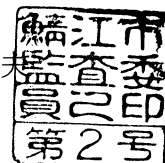 鯖江市
監査委
員之印
第2号